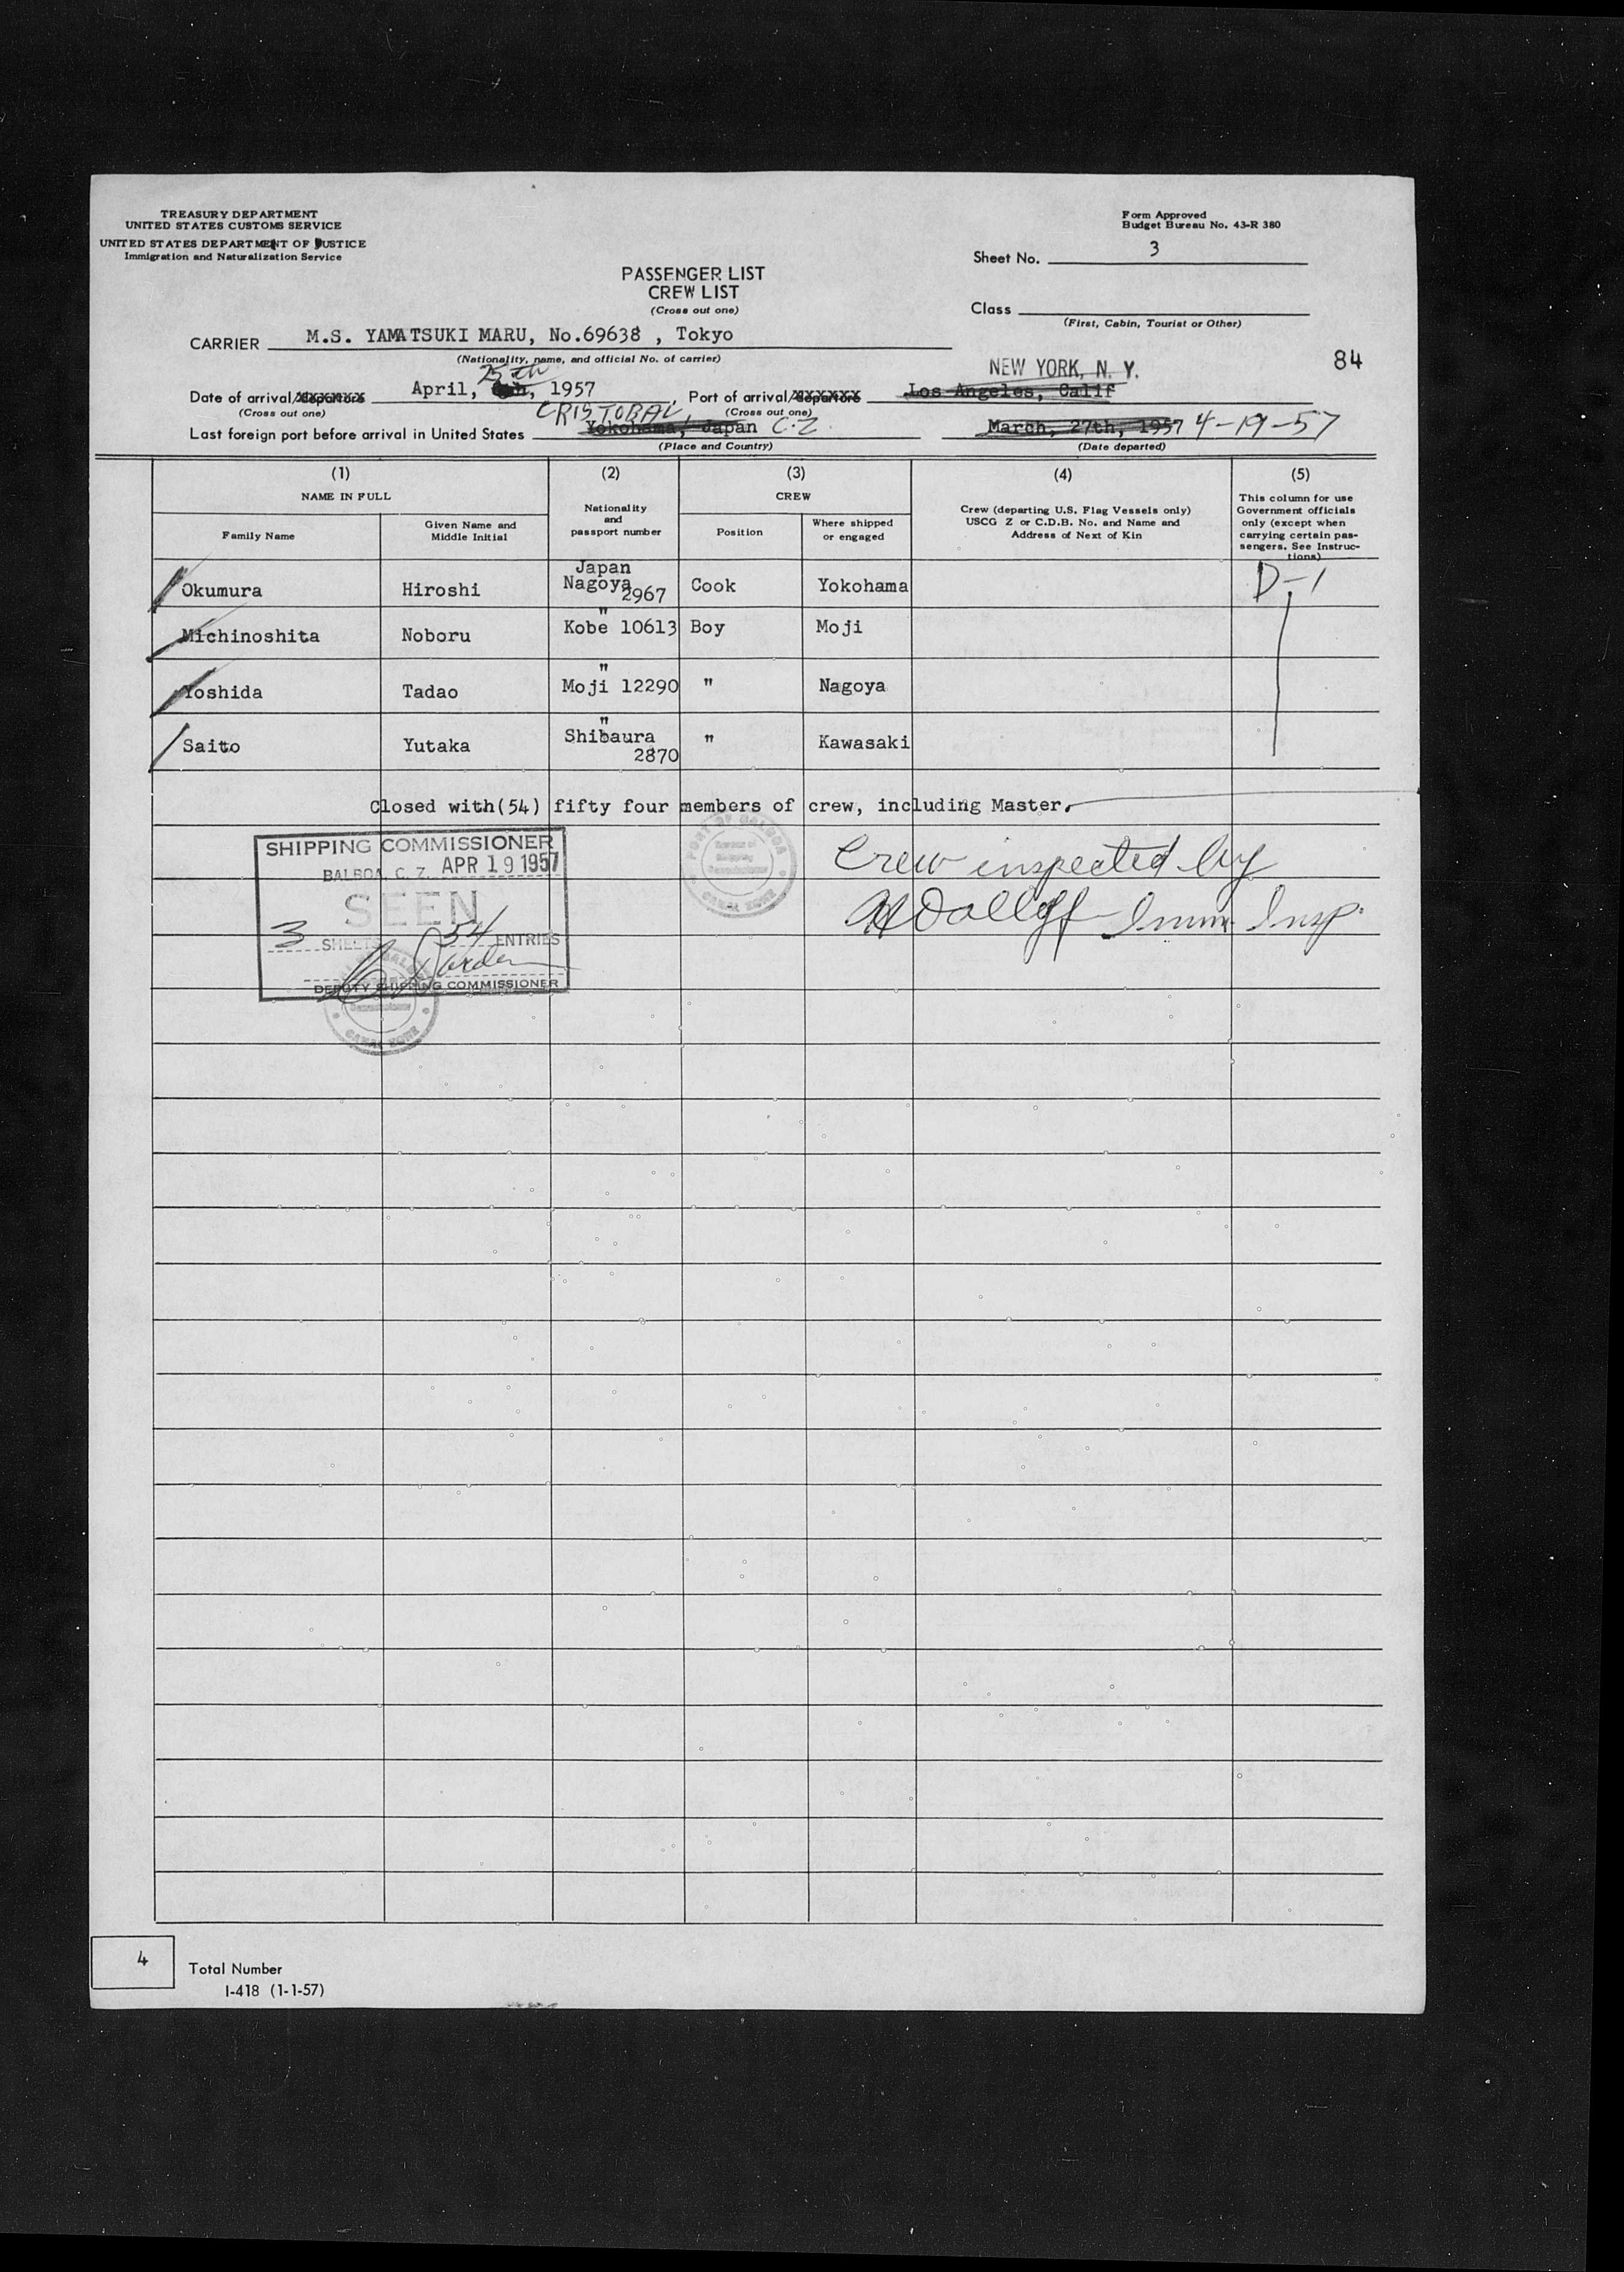 TREASURY DEPARTMENT
UNITED STATES CUSTOMS SERVICE
UNITED STATES DEPARTMENT OF JUSTICE
Immigration and Naturalization Service
Form Approved
Budget Bureau No. 43-R 380
Sheet No. 3
PASSENGER LIST
CREW LIST
(Cross out one)
Class
(First, Cabin, Tourist or Other)
CARRIER M.S. YAMATSUKI MARU, No.69638 , Tokyo
(Nationality, name, and official No. of carrier)
84
NEW YORK, N. Y.
25th
Date of arrival/departure April, 1957, Port of arrival/departure Los Angeles, Calif
(Cross out one) (Cross out one)
CRISTOBAL, C.Z.
Last foreign port before arrival in United States Yokohama, Japan March, 27th, 1957 4-19-57
(Place and Country) (Date departed)
(1) (2) (3) (4) (5)
NAME IN FULL
Family Name
Given Name and Middle Initial
Nationality and passport number
CREW
Position
Where shipped or engaged
Crew (departing U.S. Flag Vessels only)
USCG Z or C.D.B. No. and Name and
Address of Next of Kin
This column for use
Government officials
only (except when
carrying certain pas-
sengers. See Instruc-
tions)
Japan
Okumura Hiroshi Nagoya 2967 Cook Yokohama D-1
"
Michinoshita Noboru Kobe 10613 Boy Moji
"
Yoshida Tadao Moji 12290 " Nagoya
"
Saito Yutaka Shibaura 2870 " Kawasaki
Closed with(54) fifty four members of crew, including Master.
SHIPPING COMMISSIONER
BALBOA, C. Z. APR 19 1957
SEEN
3 SHEETS 54 ENTRIES
DEPUTY SHIPPING COMMISSIONER
PORT OF BALBOA
CANAL ZONE
CANAL ZONE
Crew inspected by
Imm. Insp.
4 Total Number
I-418 (1-1-57)